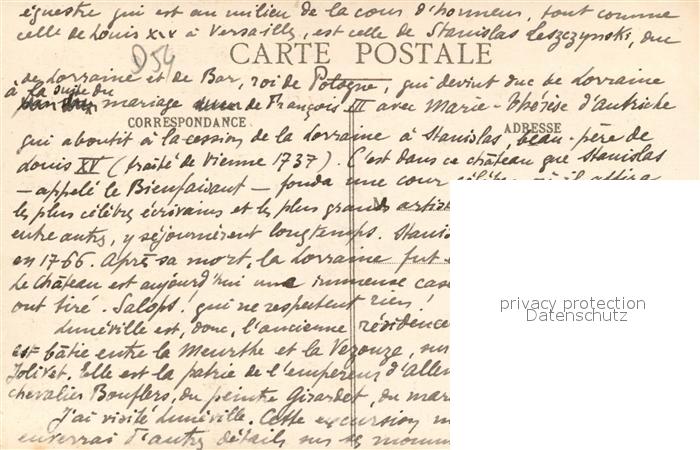 équestre qui est au milieu de la cour d'honneur, tout comme
celle de Louis XIV à Versailles, est celle de Stanislas Leszczynski, duc
D54
CARTE POSTALE
de Lorraine et de Bar, roi de Pologne, qui devint duc de Lorraine
à la suite du
mariage de François III avec Marie-Thérèse d'Autriche
CORRESPONDANCE
ADRESSE
qui aboutit à la cession de la Lorraine à Stanislas, beau-père de
Louis XV (traité de Vienne 1737). C'est dans ce château que Stanislas
— appelé le Bienfaisant — fonda une cour célèbre où il attira
les plus célèbres écrivains et les plus grands artist
entre autres, y séjournèrent longtemps. Stanis
en 1766. Après sa mort, la Lorraine fut
Le Château est aujourd'hui une immense cas
ont tiré. Salops! qui ne respectent rien!
privacy protection
Datenschutz
Lunéville est, donc, l'ancienne résidence
est bâtie entre la Meurthe et la Vezouze, sur
Jolivet. Elle est la patrie de l'empereur d'Allem
chevalier Bouflers, du peintre Girardet, du mar
J'ai visité Lunéville. Cette excursion m
enverrai d'autres détails sur ses monum